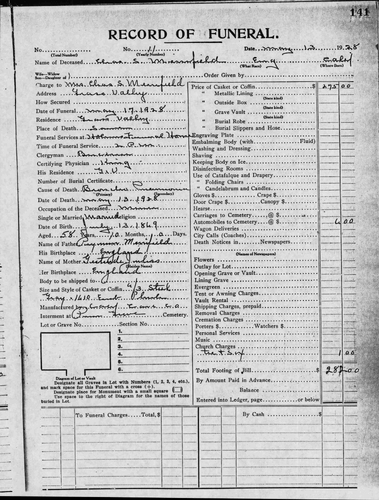 141
RECORD OF FUNERAL.
No. No. 11 Date May 13 1928
(Total Number) (Yearly Number)
Name of Deceased Chas. S. Merrifield Eng
(What Name) (Where Born)
Wife - Widow
Son - Daughter of Order Given by
Charge to Mrs Chas S. Merrifield
Grass Valley
How Secured
Date of Funeral May 17 - 1928
Residence Grass Valley
Place of Death Same
Funeral Services at Funeral Home
Time of Funeral Service 2 P.M.
Clergyman
Certifying Physician
His Residence G.V.
Number of Burial Certificate
Cause of Death
Date of Death May 13 - 1928
Occupation of the Deceased Miner
Single or Married Married Religion
Date of Birth July 13 - 1869
Aged 58 Years, 10 Months, 0 Days
Name of Father Merrifield
His Birthplace England
Name of Mother
Her Birthplace England
Body to be shipped to
Size and Style of Casket or Coffin 6/3 Steel
Gray
Manufactured by
Interment at Cemetery
Lot or Grave No. Section No.
1.
2.
3.
4.
5.
6.
Diagram of Lot or Vault
Designate all Graves in Lot with Numbers (1, 2, 3, 4, etc.),
and mark space for this Funeral with a cross (+)
Designate place for Monument with a small square
Use space to the right of Diagram for the names of those
buried in Lot.
Price of Casket or Coffin $ 275 00
" Metallic Lining
" Outside Box
" Grave Vault
" Burial Robe
" Burial Slippers and Hose
Engraving Plate
Embalming Body (with Fluid)
Washing and Dressing
Shaving
Keeping Body on Ice
Disinfecting Rooms
Use of Catafalque and Drapery
" Folding Chairs
" Candelabrum and Candles
Gloves $ Door Crape $ Hearse
Carriages to Cemetery @ $
Automobiles to Cemetery @ $ 6 00
Wagon Deliveries
City Calls (Coaches)
Death Notices in Newspapers
(Names of Newspapers)
Flowers
Outlay for Lot
Opening Grave or Vault
Lining Grave
Evergreen
Tent or Awning Charges
Vault Rental
Shipping Charges, prepaid
Removal Charges
Cremation Charges
Porters $ Watchers $
Personal Services
Music
Church Charges
1 00
Total Footing of Bill $ 282 00
By Amount Paid in Advance
Balance
Entered into Ledger, page or below
To Funeral Charges, Total $ By Cash $